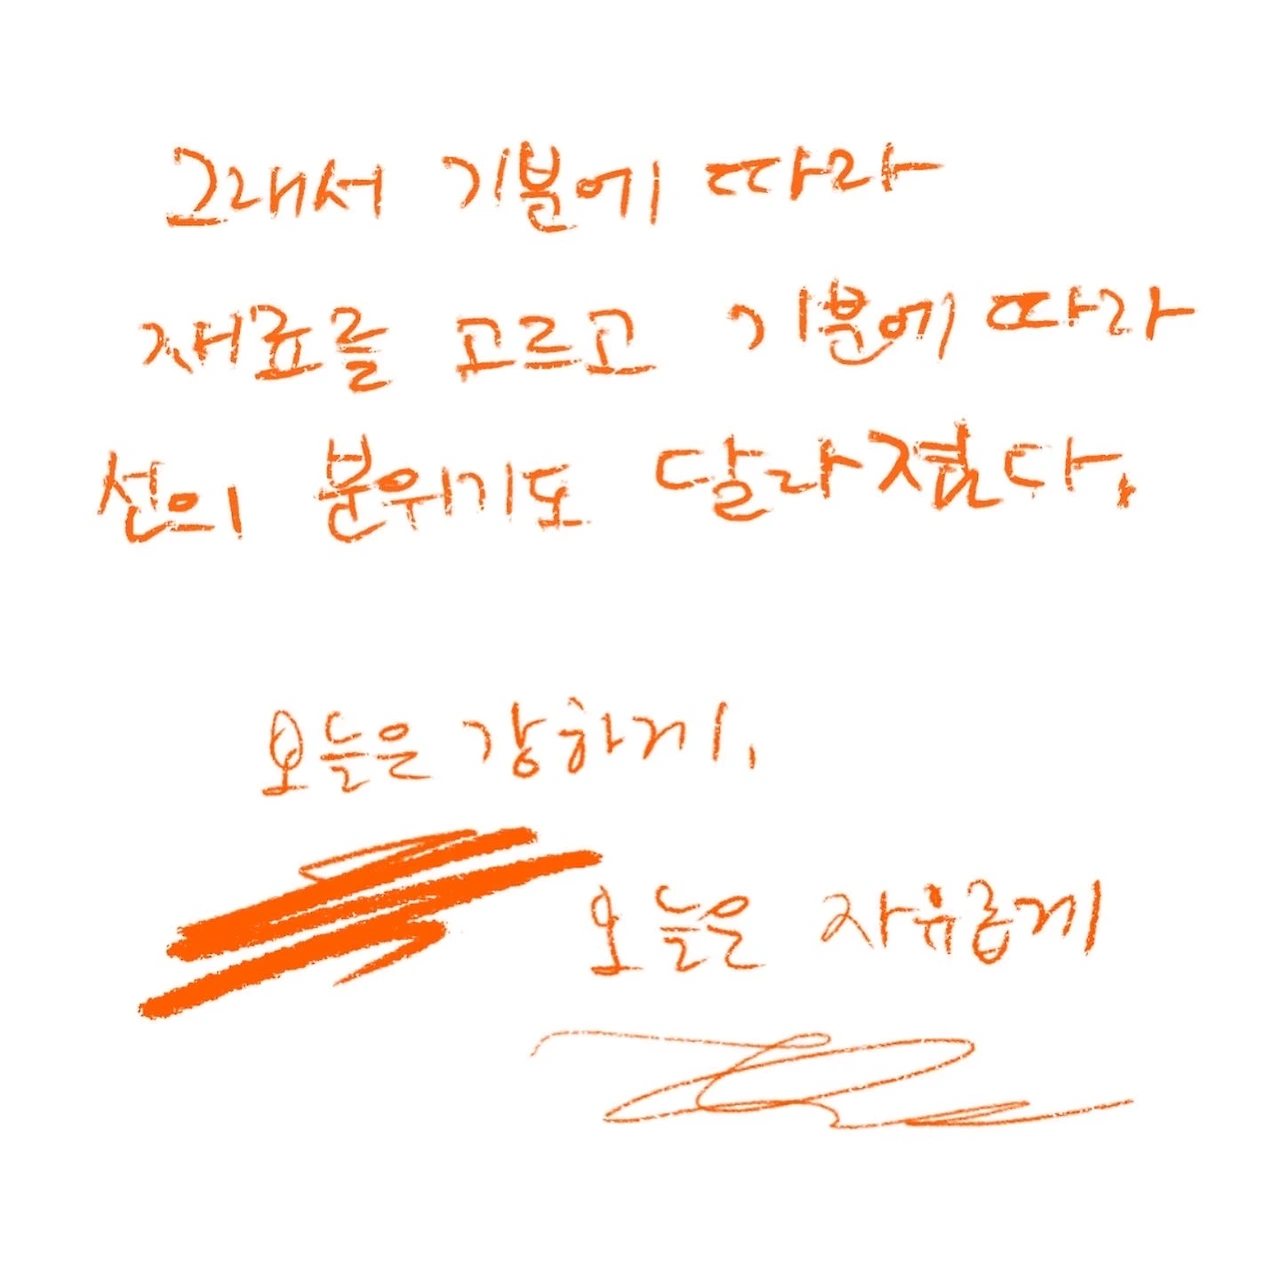 그래서 기분에 따라
재료를 고르고 기분에 따라
선의 분위기도 달라졌다.
오늘은 강하게,
오늘은 자유롭게